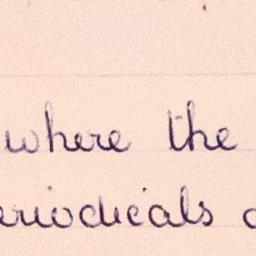 where the
eriodicals